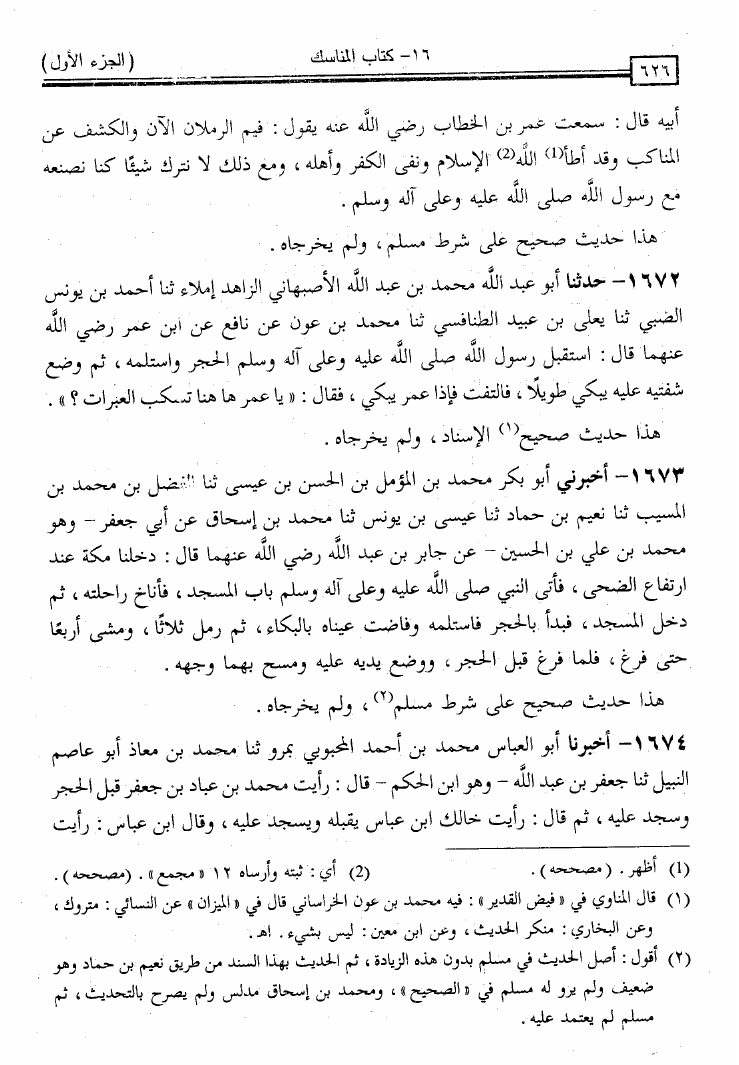 ٦٢٦
١٦- كتاب المناسك
(الجزء الأول)
أبيه قال : سمعت عمر بن الخطاب رضي الله عنه يقول : فيم الرملان الآن والكشف عن
المناكب وقد أطأ(1) الله(2) الإسلام ونفى الكفر وأهله ، ومع ذلك لا نترك شيئًا كنا نصنعه
مع رسول الله صلى الله عليه وعلى آله وسلم .
هذا حديث صحيح على شرط مسلم ، ولم يخرجاه .
١٦٧٢- حدثنا أبو عبد الله محمد بن عبد الله الأصبهاني الزاهد إملاء ثنا أحمد بن يونس
الضبي ثنا يعلى بن عبيد الطنافسي ثنا محمد بن عون عن نافع عن ابن عمر رضي الله
عنهما قال : استقبل رسول الله صلى الله عليه وعلى آله وسلم الحجر واستلمه ، ثم وضع
شفتيه عليه يبكي طويلًا ، فالتفت فإذا عمر يبكي ، فقال : « يا عمر ها هنا تسكب العبرات ؟ » .
هذا حديث صحيح(١) الإسناد ، ولم يخرجاه .
١٦٧٣- أخبرني أبو بكر محمد بن المؤمل بن الحسن بن عيسى ثنا الفضل بن محمد بن
المسيب ثنا نعيم بن حماد ثنا عيسى بن يونس ثنا محمد بن إسحاق عن أبي جعفر – وهو
محمد بن علي بن الحسين – عن جابر بن عبد الله رضي الله عنهما قال : دخلنا مكة عند
ارتفاع الضحى ، فأتى النبي صلى الله عليه وعلى آله وسلم باب المسجد ، فأناخ راحلته ، ثم
دخل المسجد ، فبدأ بالحجر فاستلمه وفاضت عيناه بالبكاء ، ثم رمل ثلاثًا ، ومشى أربعًا
حتى فرغ ، فلما فرغ قبل الحجر ، ووضع يديه عليه ومسح بهما وجهه .
هذا حديث صحيح على شرط مسلم(٢) ، ولم يخرجاه .
١٦٧٤- أخبرنا أبو العباس محمد بن أحمد المحبوبي بمرو ثنا محمد بن معاذ أبو عاصم
النبيل ثنا جعفر بن عبد الله – وهو ابن الحكم – قال : رأيت محمد بن عباد بن جعفر قبل الحجر
وسجد عليه ، ثم قال : رأيت خالك ابن عباس يقبله ويسجد عليه ، وقال ابن عباس : رأيت
(1) أظهر . (مصححه) . (2) أي : ثبته وأرساه ١٢ « مجمع » . (مصححه) .
(١) قال المناوي في « فيض القدير » : فيه محمد بن عون الخراساني قال في « الميزان » عن النسائي : متروك ،
وعن البخاري : منكر الحديث ، وعن ابن معين : ليس بشيء . اهـ .
(٢) أقول : أصل الحديث في مسلم بدون هذه الزيادة ، ثم الحديث بهذا السند من طريق نعيم بن حماد وهو
ضعيف ولم يرو له مسلم في « الصحيح » ، ومحمد بن إسحاق مدلس ولم يصرح بالتحديث ، ثم
مسلم لم يعتمد عليه .